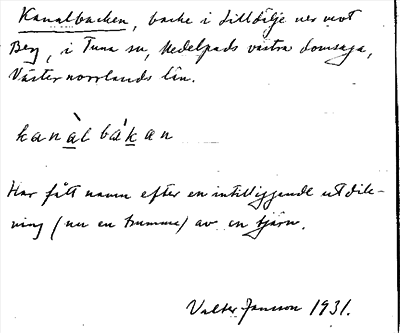 Kanalbacken, backe i Lillbölje ner mot
Berg, i Tuna sn, Medelpads västra domsaga,
Västernorrlands län.
kanàlbákan
Har fått namn efter en intilliggande utdik-
ning (nu en trumma) av en tjärn.
Valter Jansson 1931.